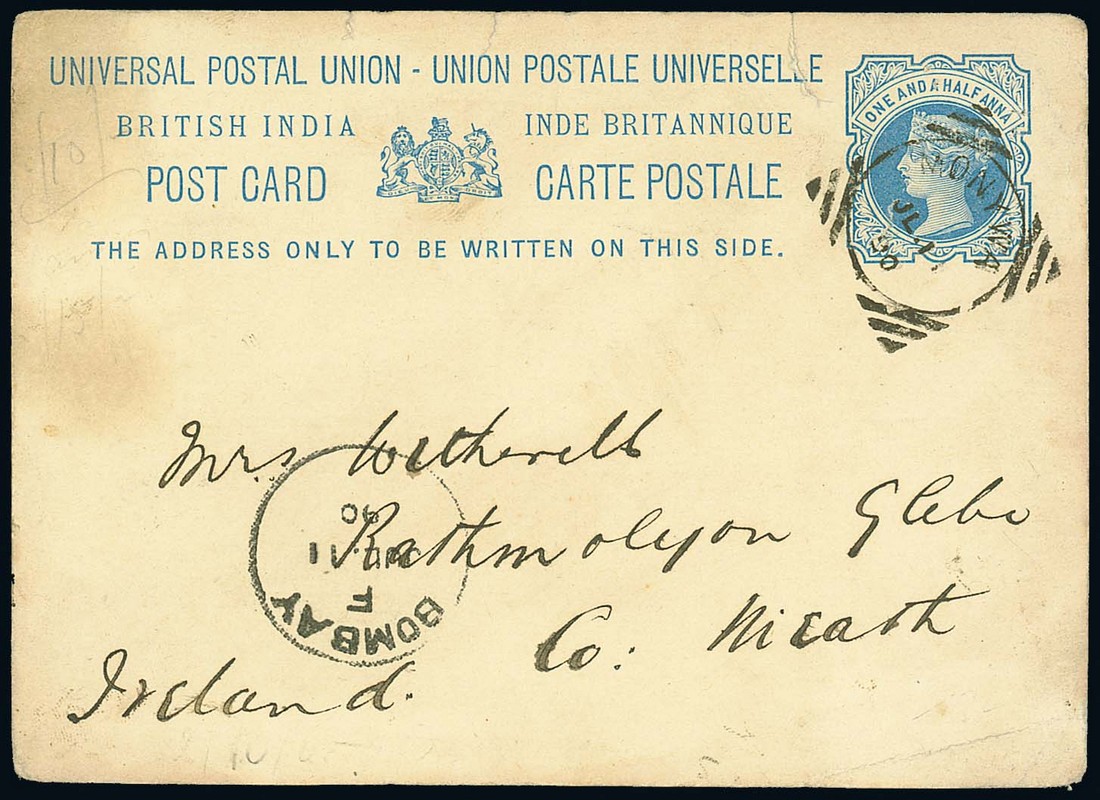 UNIVERSAL POSTAL UNION - UNION POSTALE UNIVERSELLE
BRITISH INDIA INDE BRITANNIQUE
POST CARD CARTE POSTALE
THE ADDRESS ONLY TO BE WRITTEN ON THIS SIDE.
ONE AND A HALF ANNA
JL 1
90
110
Mrs Witherell
Rathmolyon Glebe
Co: Meath
Ireland.
BOMBAY
F
90